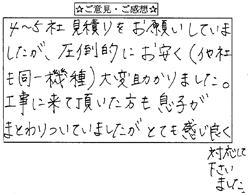 ☆ご意見・ご感想☆
4〜5社見積りをお願いしていま
したが、圧倒的にお安く(他社
も同一機種)大変助かりました。
工事に来て頂いた方も息子が
まとわりついていましたがとても感じ良く
対応して
下さい
ました。